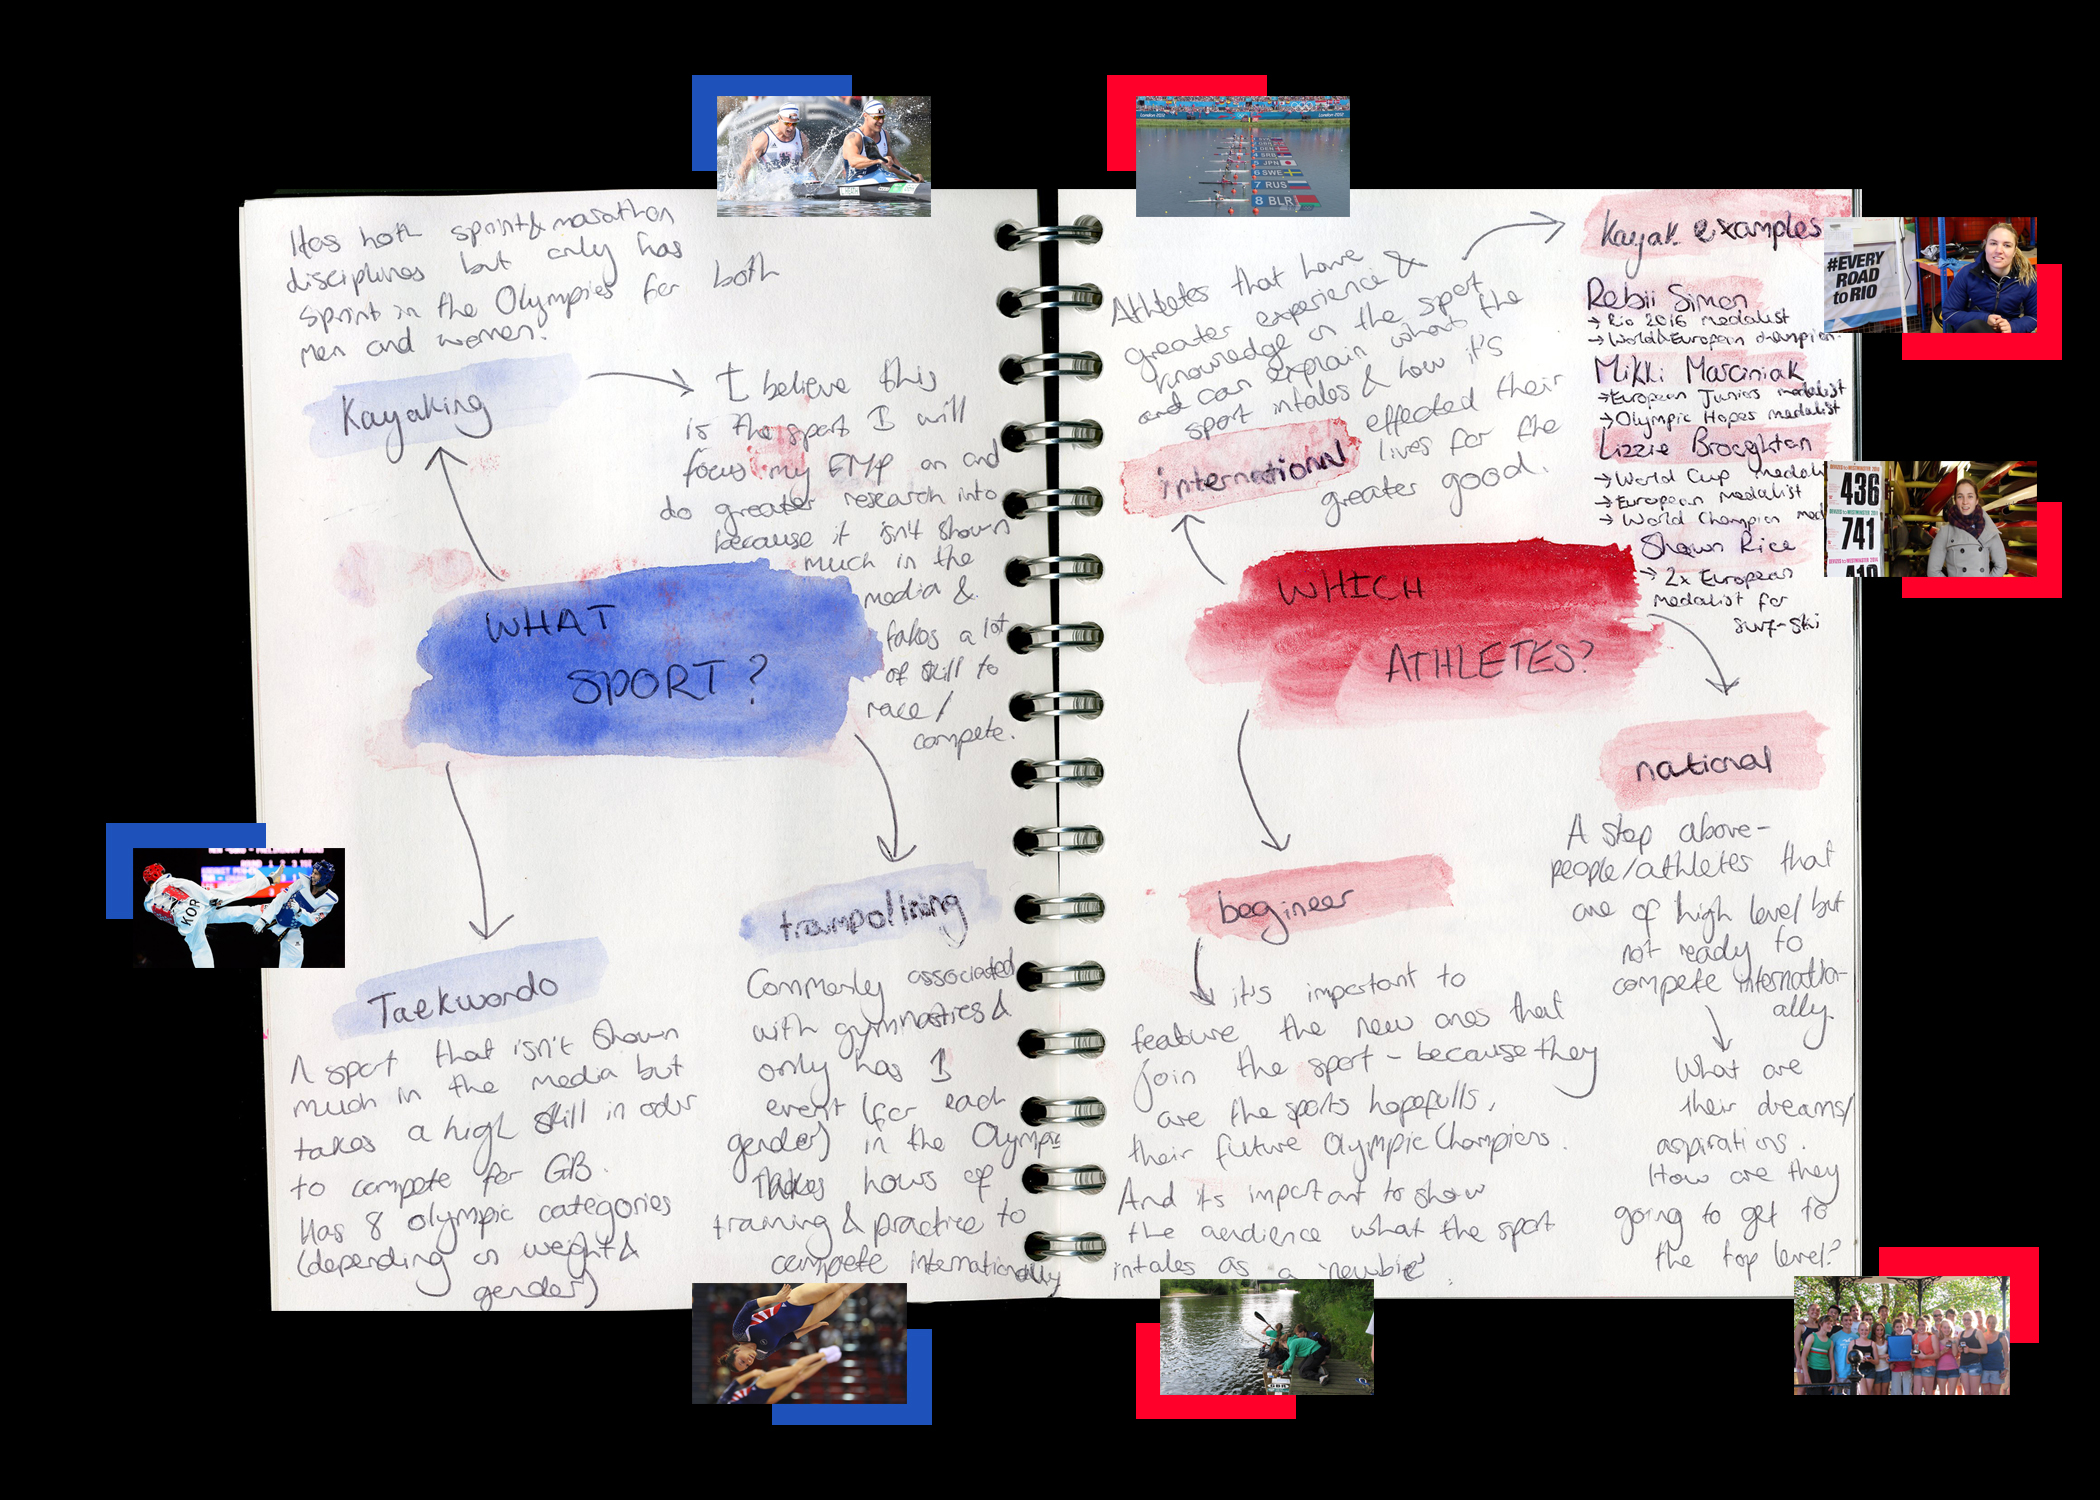 Has both sprint & marathon
disciplines but only has
sprint in the Olympics for both
men and women.
Kayaking
I believe this
is the sport I will
focus my FMP on and
do greater research into
because it isn't shown
much in the
media &
takes a lot
of skill to
race/
compete.
WHAT
SPORT?
Taekwondo
A sport that isn't shown
much in the media but
takes a high skill in oder
to compete for GB.
Has 8 olympic categories
(depending on weight &
gender)
trampolining
Commonly associated
with gymnastics &
only has 1
event (for each
gender) in the Olympic
Takes hours of
training & practice to
compete internationally
KOR
London 2012
London 2012
5 JPN
6 SWE
7 RUS
8 BLR
Athletes that have
greater experience &
knowledge in the sport
and can explain what the
sport intales & how it's
effected their
lives for the
greater good.
international
Kayak examples
Rebii Simon
→ Rio 2016 medalist
→ World & European champion.
Mikki Marciniak
→ European Juniors medalist
→ Olympic Hopes medalist
Lizzie Broughton
→ World Cup medali
→ European medalist
→ World Champion med
Shawn Rice
→ 2x European
medalist for
surf-ski
#EVERY
ROAD
to RIO
436
741
WHICH
ATHLETES?
national
A step above-
people/athletes that
are of high level but
not ready to
compete internatio-
ally.
What are
their dreams/
aspirations.
How are they
going to get to
the top level?
begineer
it's important to
feature the new ones that
join the sport - because they
are the sports hopefulls,
their future Olympic Champions.
And its important to show
the aendience what the sport
intales as a 'newbie'.